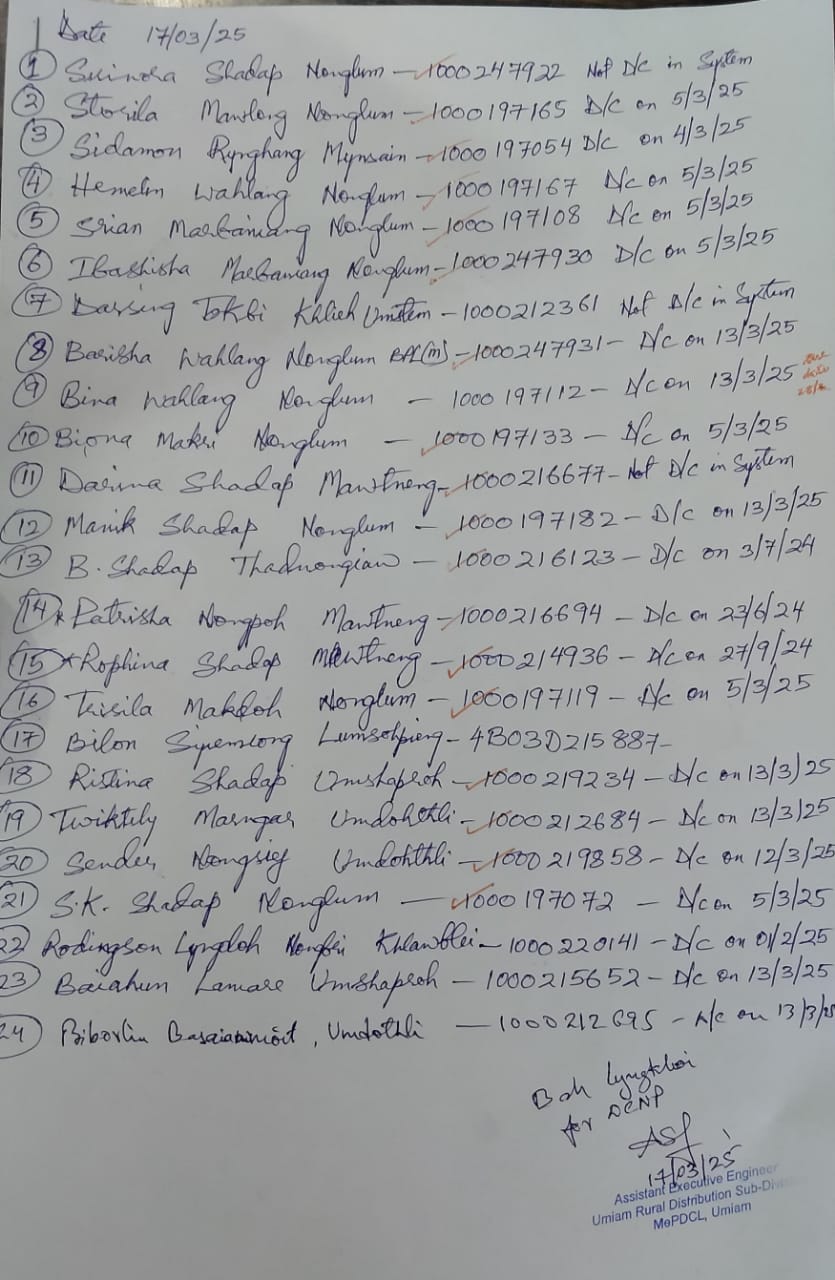 Date 17/03/25
① Suindra Shadap Nonglum — 1000247922 Not D/c in System
② Storila Mawlong Nonglum — 1000197165 D/c on 5/3/25
③ Sidamon Rynghang Mynsain — 1000197054 D/c on 4/3/25
④ Hemelin Wahlang Nonglum — 1000197167 D/c on 5/3/25
⑤ Srian Marbaniang Nonglum — 1000197108 D/c on 5/3/25
⑥ Ibashisha Marbaniang Nonglum — 1000247930 D/c on 5/3/25
⑦ Darsing Tokbi Khlieh Umstem — 1000212361 Not D/c in System
⑧ Barisha Wahlang Nonglum BPL(m) — 1000247931 — D/c on 13/3/25
⑨ Bina Wahlang Nonglum — 1000197112 — D/c on 13/3/25
⑩ Biona Makri Nonglum — 1000197133 — D/c on 5/3/25
⑪ Darima Shadap Mawtneng — 1000216677 — Not D/c in System
⑫ Manik Shadap Nonglum — 1000197182 — D/c on 13/3/25
⑬ B. Shadap Thadnongiaw — 1000216123 — D/c on 3/7/24
⑭ * Patrisha Nongpoh Mawtneng — 1000216694 — D/c on 23/6/24
⑮ * Rophina Shadap Mawtneng — 1000214936 — D/c on 27/9/24
⑯ Trisila Makdoh Nonglum — 1000197119 — D/c on 5/3/25
⑰ Bilon Syiemiong — 4B03D215887 —
⑱ Ristina Shadap Umshaproh — 1000219234 — D/c on 13/3/25
⑲ Twiktily Marngar Umdohthli — 1000212684 — D/c on 13/3/25
⑳ Sender Nongsiej Umdohthli — 1000219858 — D/c on 12/3/25
㉑ S.K. Shadap Nonglum — 1000197072 — D/c on 5/3/25
㉒ Rodingson Lyngdoh Nongbri Khlawblei — 1000220141 — D/c on 01/2/25
㉓ Baiahun Lamare Umshaproh — 1000215652 — D/c on 13/3/25
㉔ Biborlin , Umdothli — 1000212695 — D/c on 13/3/25
Bah Lyngkhoi
for DCNP
17/03/25
Assistant Executive Engineer
Umiam Rural Distribution Sub-Div
MePDCL, Umiam